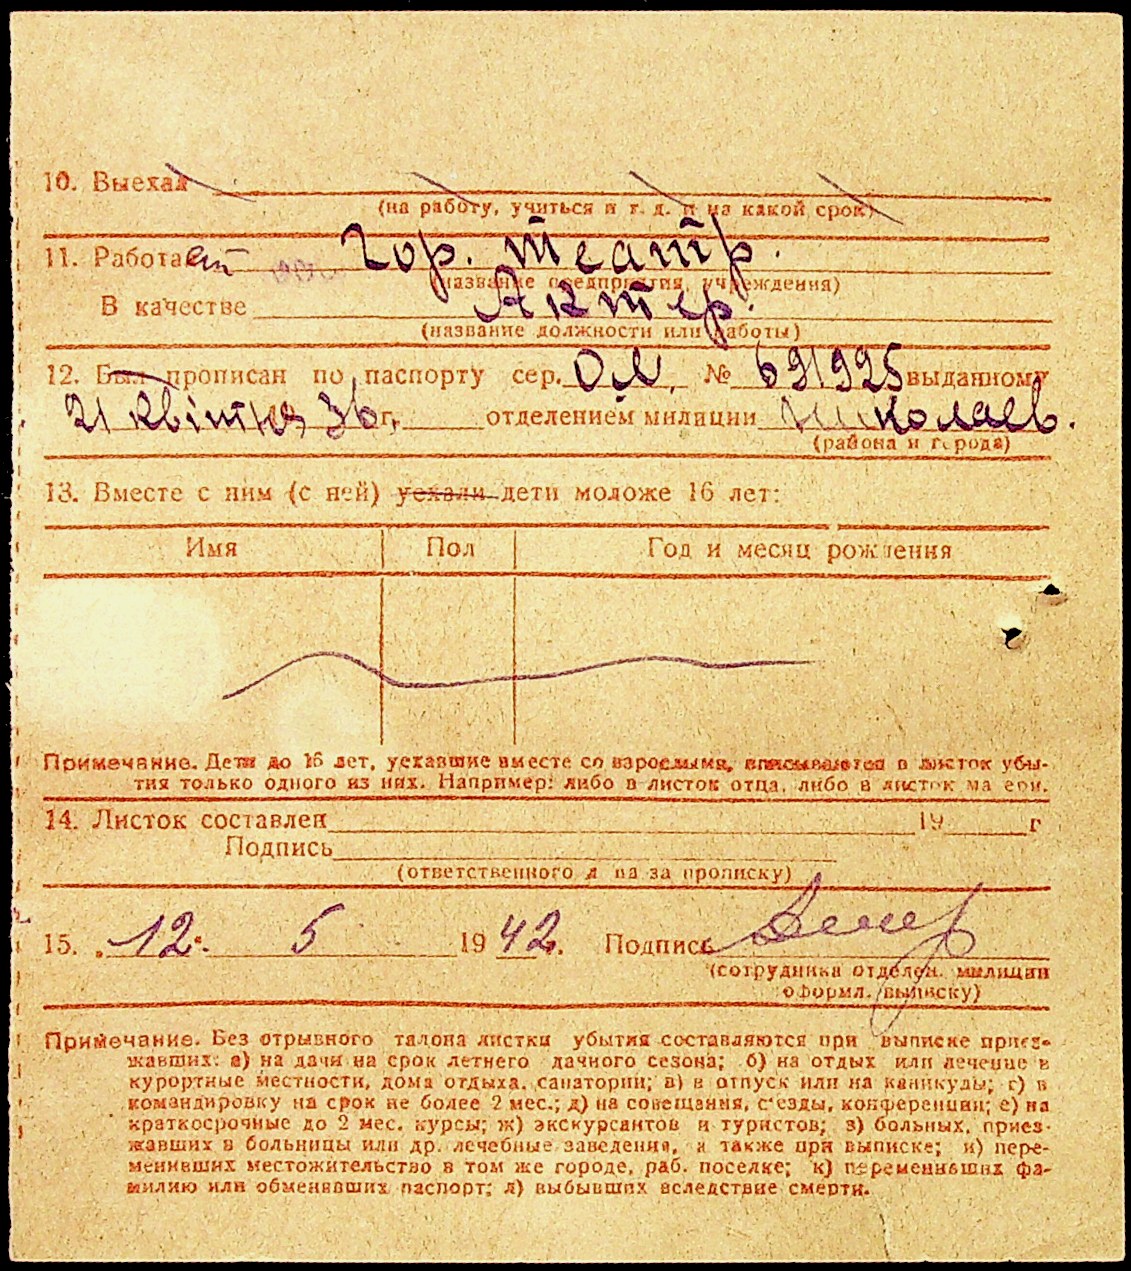 10. Выехал
(на работу, учиться и т. д. и на какой срок)
11. Работает Гор. театр.
(название предприятия, учреждения)
В качестве Актер.
(название должности или работы)
12. Был прописан по паспорту сер. ОМ, № 691925 выданному
21 квітня 36 г. отделением милиции Николаев.
(района и города)
13. Вместе с ним (с ней) уехали дети моложе 16 лет:
Имя Пол Год и месяц рождения
Примечание. Дети до 16 лет, уехавшие вместе со взрослыми, вписываются в листок убы-
тия только одного из них. Например: либо в листок отца, либо в листок матери.
14. Листок составлен 19 г
Подпись
(ответственного лица за прописку)
15. „12“ 5 1942. Подпись
(сотрудника отделен. милиции
оформл. выписку)
Примечание. Без отрывного талона листки убытия составляются при выписке приез-
жавших: а) на дачи на срок летнего дачного сезона; б) на отдых или лечение в
курортные местности, дома отдыха, санатории; в) в отпуск или на каникулы; г) в
командировку на срок не более 2 мес.; д) на совещания, с'езды, конференции; е) на
краткосрочные до 2 мес. курсы; ж) экскурсантов и туристов; з) больных, приез-
жавших в больницы или др. лечебные заведения, а также при выписке; и) пере-
менивших местожительство в том же городе, раб. поселке; к) переменивших фа-
милию или обменявших паспорт; л) выбывших вследствие смерти.